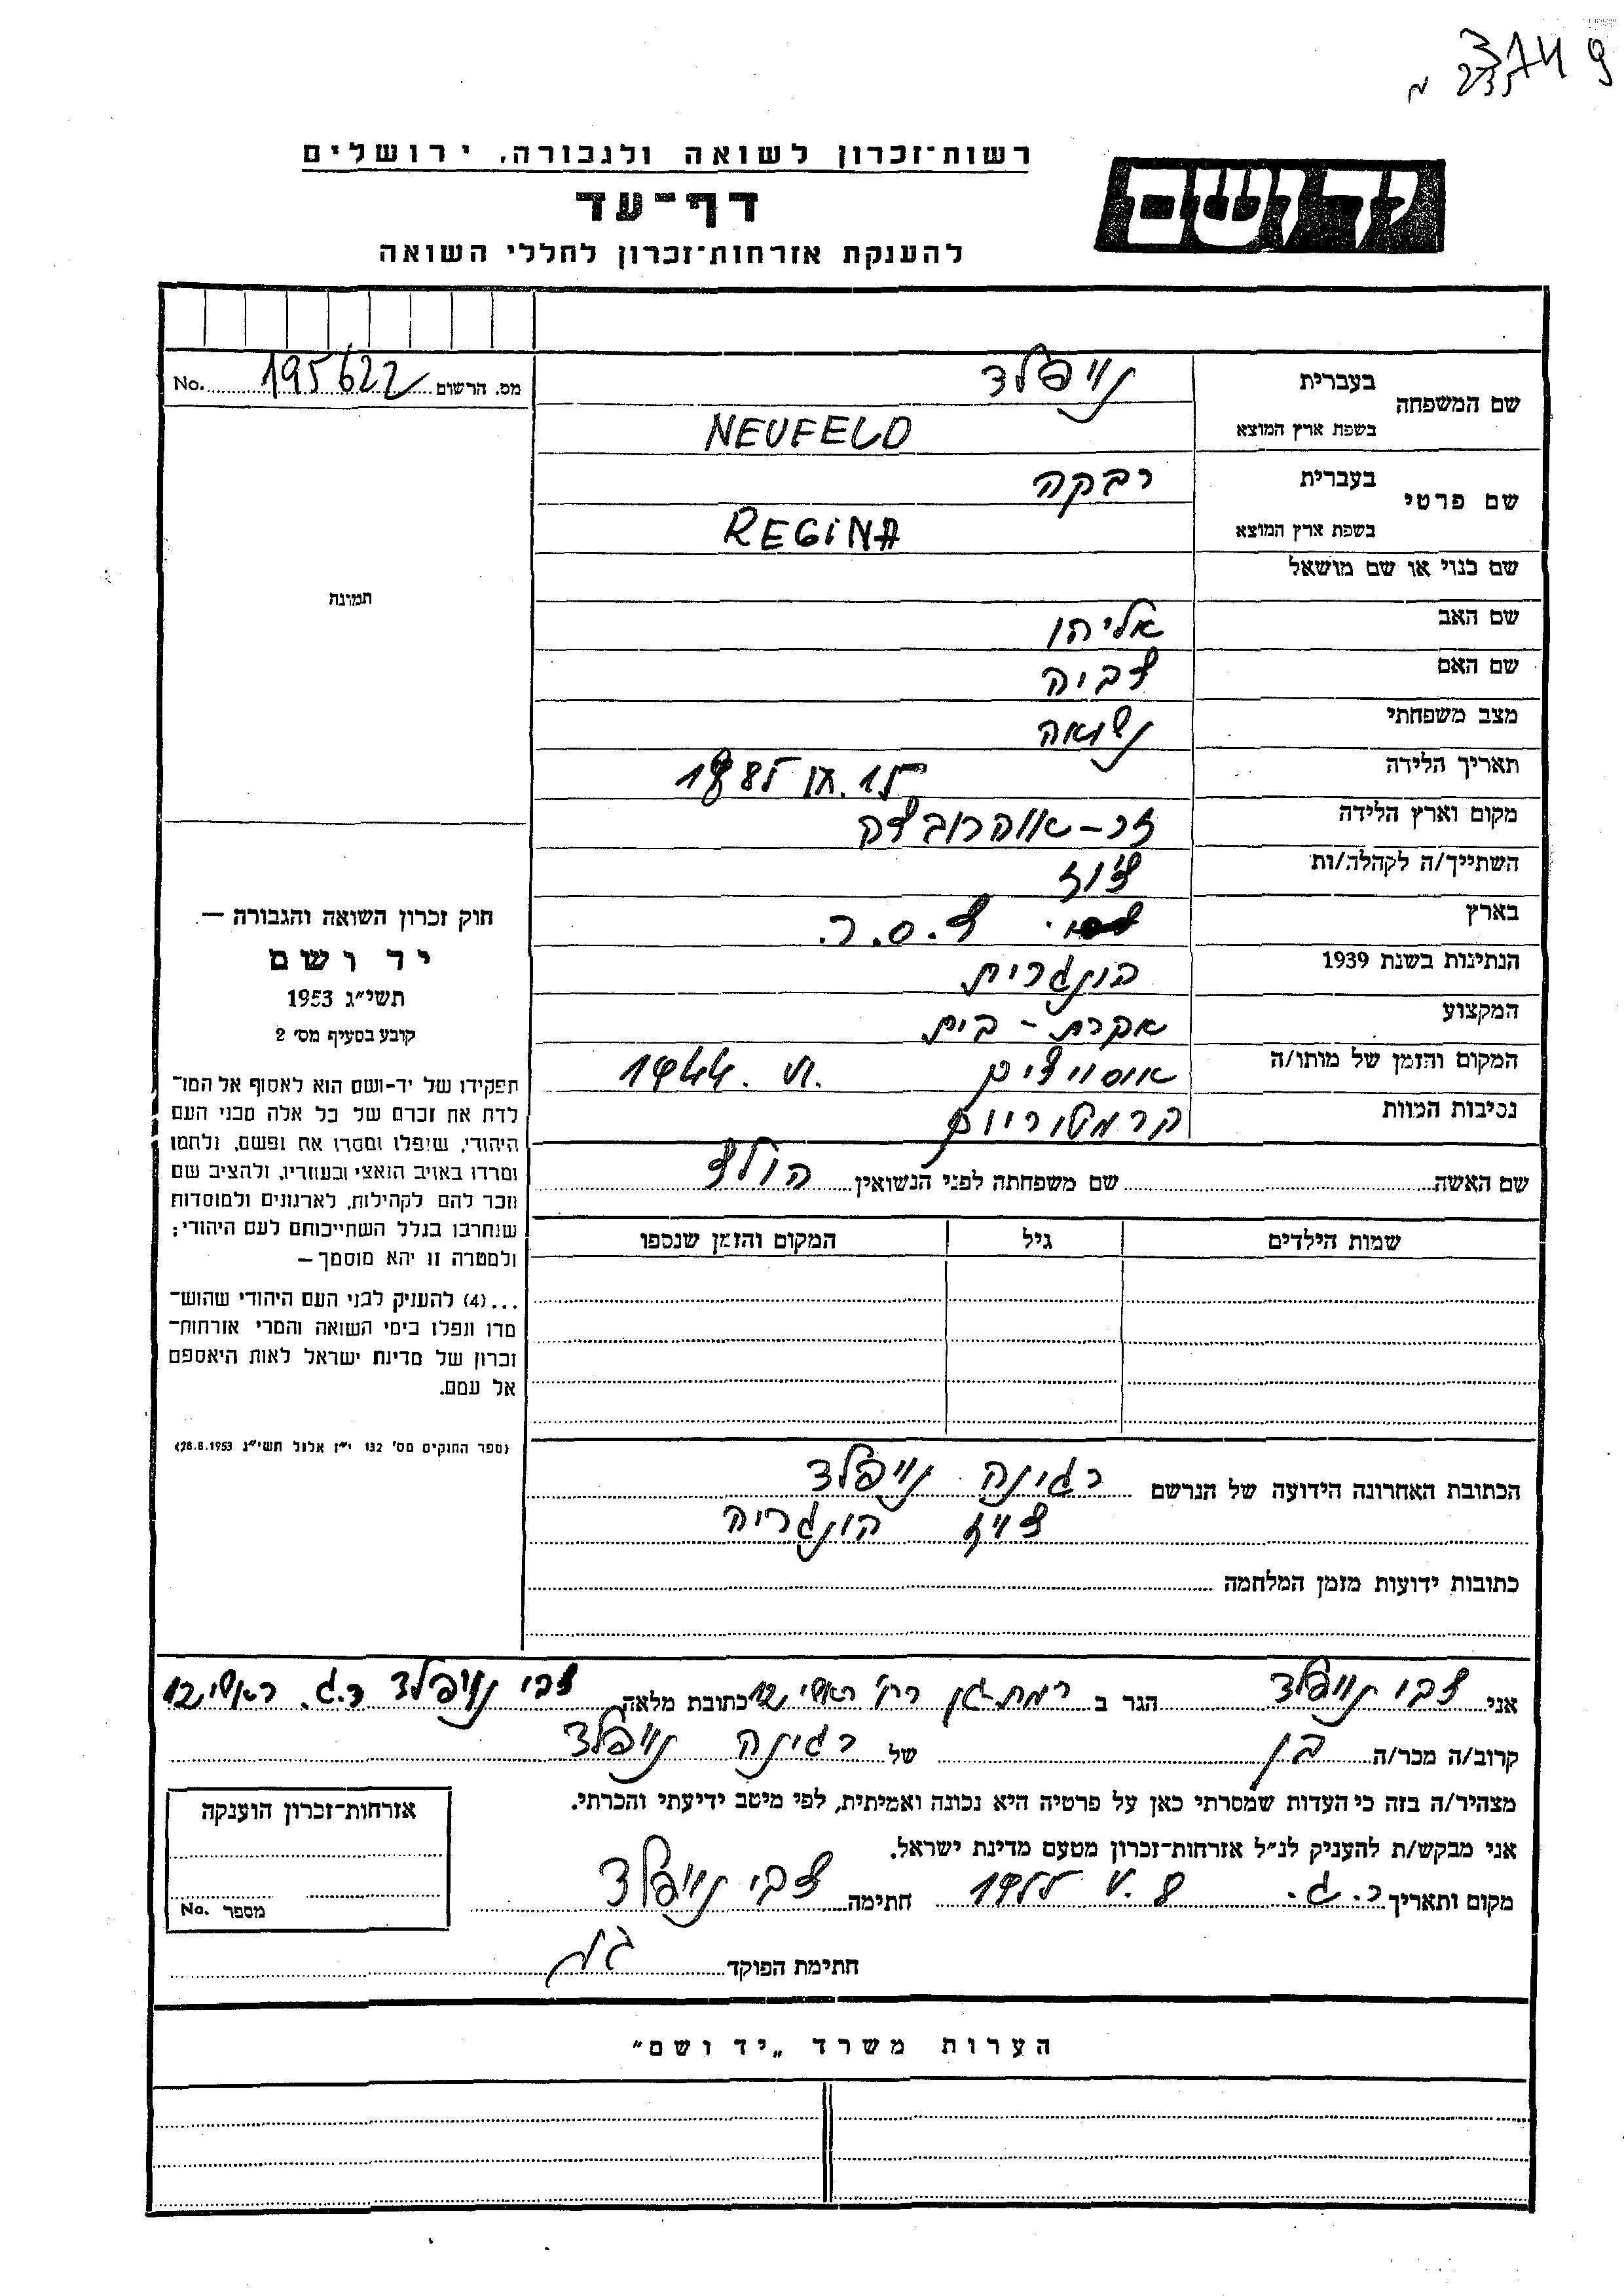 3749
235 מ
רשות־זכרון לשואה ולגבורה, ירושלים
יד ושם
דף־עד
להענקת אזרחות־זכרון לחללי השואה
מס. הרשום 195622 No.
שם המשפחה
בעברית נויפלד
בשפת ארץ המוצא NEUFELD
שם פרטי
בעברית רבקה
בשפת ארץ המוצא REGINA
שם כנוי או שם מושאל
שם האב אליהו
שם האם צביה
מצב משפחתי נשואה
תאריך הלידה
מקום וארץ הלידה
השתייך/ה לקהלה/ות
בארץ צ.ס.ר.
הנתינות בשנת 1939 הונגרית
המקצוע עקרת-בית
המקום והזמן של מותו/ה אוסוויצים VI. 1944
נסיבות המוות קרמטוריום
שם האשה שם משפחתה לפני הנשואין
שמות הילדים גיל המקום והזמן שנספו
הכתובת האחרונה הידועה של הנרשם רגינה נויפלד
הונגריה
כתובות ידועות מזמן המלחמה
תמונה
חוק זכרון השואה והגבורה —
יד ושם
תשי״ג 1953
קובע בסעיף מס׳ 2
תפקידו של יד־ושם הוא לאסוף אל המו־
לדת את זכרם של כל אלה מבני העם
היהודי, שנפלו ומסרו את נפשם, נלחמו
ומרדו באויב הנאצי ובעוזריו, ולהציב שם
וזכר להם לקהילות, לארגונים ולמוסדות
שנחרבו בגלל השתייכותם לעם היהודי;
ולמטרה זו יהא מוסמך —
...(4) להעניק לבני העם היהודי שהוש־
מדו ונפלו בימי השואה והמרי אזרחות־
זכרון של מדינת ישראל לאות היאספם
אל עמם.
(ספר החוקים מס׳ 132 י״ז אלול תשי״ג 28.8.1953)
אני צבי נויפלד הגר ב רמת-גן רח׳ ראשי 12 כתובת מלאה צבי נויפלד ר.ג. ראשי 12
קרוב/ה מכר/ה בן של רגינה נויפלד
מצהיר/ה בזה כי העדות שמסרתי כאן על פרטיה היא נכונה ואמיתית, לפי מיטב ידיעתי והכרתי.
אני מבקש/ת להעניק לנ״ל אזרחות־זכרון מטעם מדינת ישראל.
מקום ותאריך ר.ג. 8.V 1955 חתימה צבי נויפלד
חתימת הפוקד
אזרחות־זכרון הוענקה
מספר No.
הערות משרד „יד ושם״